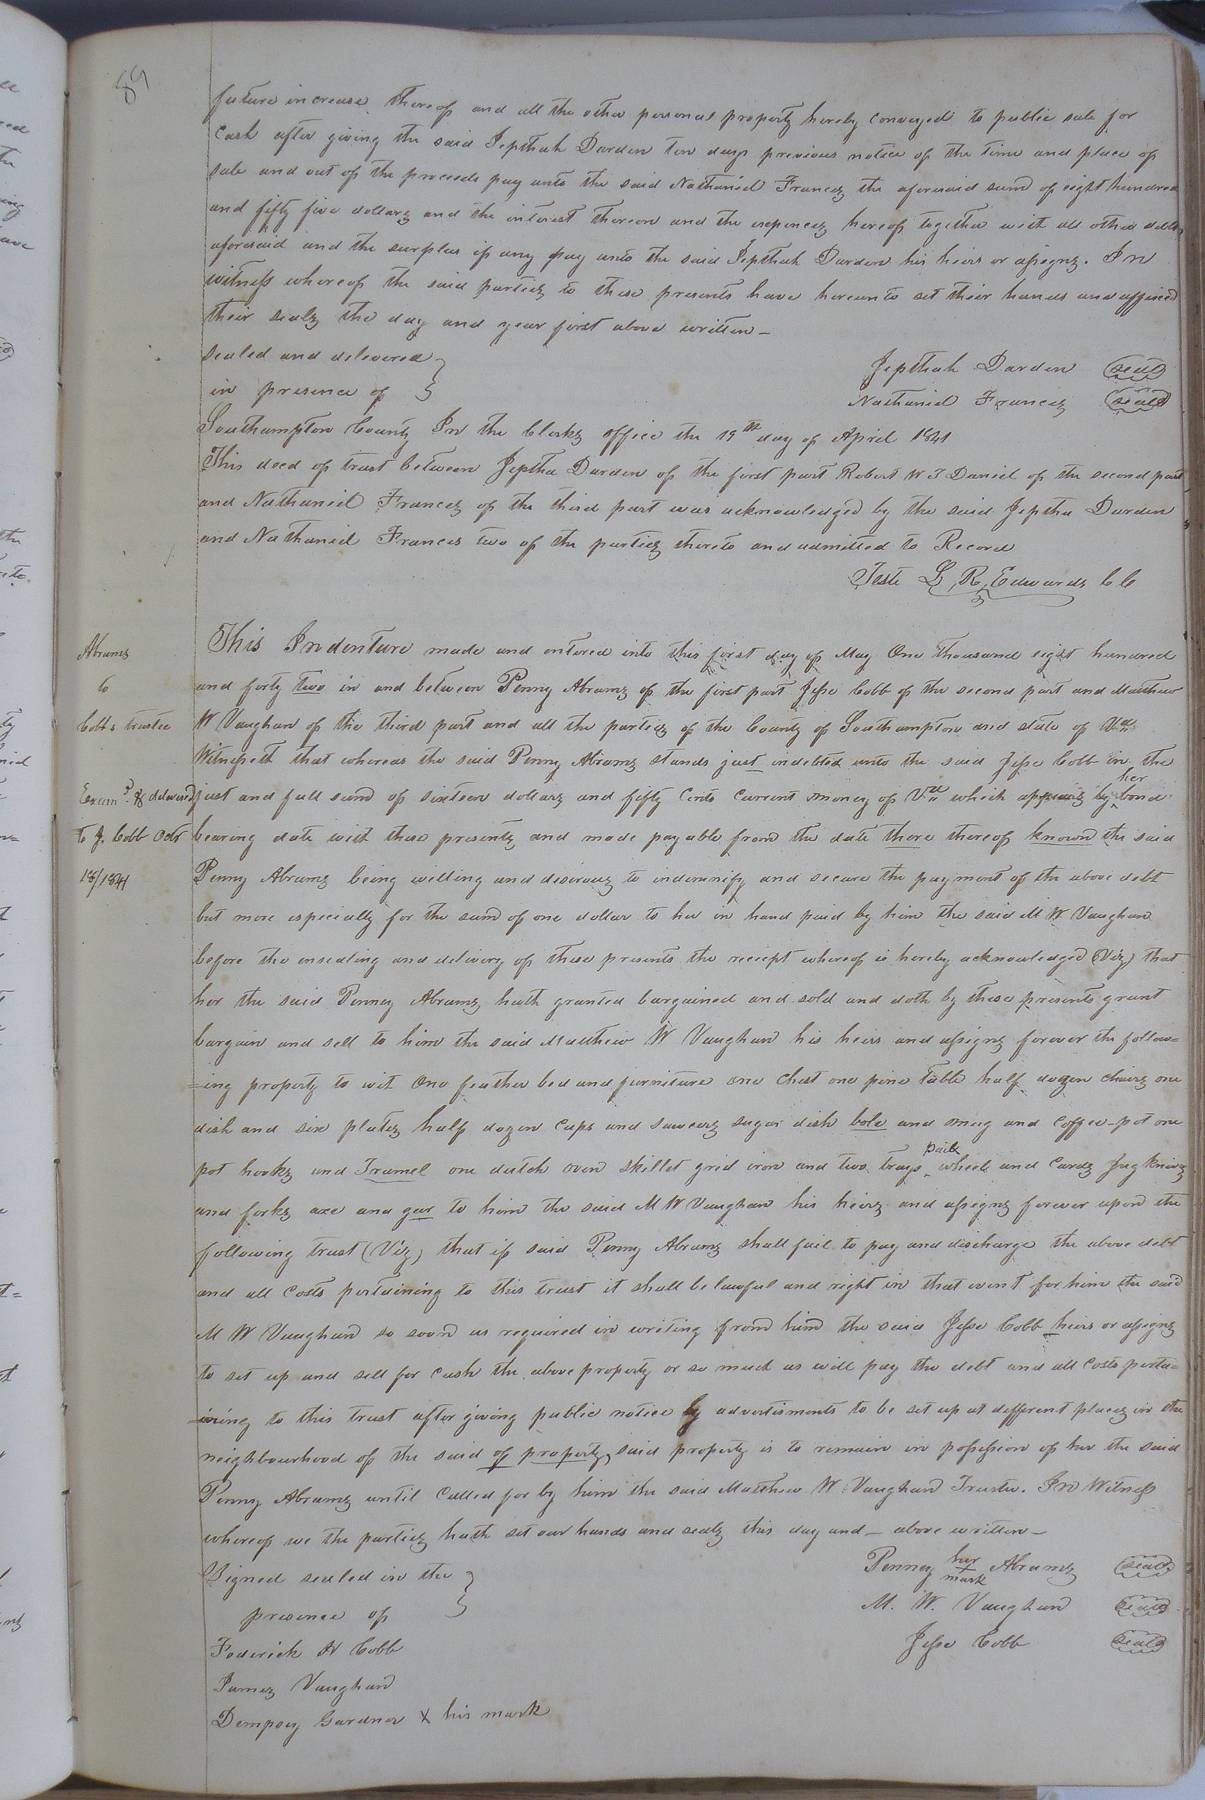 89
future increase thereof and all the other personal property hereby conveyed to public sale for
cash after giving the said Jepthah Darden ten days previous notice of the time and place of
sale and out of the proceeds pay unto the said Nathaniel Francis the aforesaid sum of eight hundred
and fifty five dollars and the interest thereon and the expences hereof together with all other debts
aforesaid and the surplus if any pay unto the said Jepthah Darden his heirs or assigns. In
witness whereof the said parties to these presents have hereunto set their hands and affixed
their seals the day and year first above written —
sealed and delivered } Jepthah Darden (seal)
in presence of } Nathaniel Francis (seal)
Southampton County In the Clerks office the 19th day of April 1841
This deed of trust between Jeptha Darden of the first part Robert W J Daniel of the second part
and Nathaniel Frances of the third part was acknowledged by the said Jeptha Darden
and Nathaniel Frances two of the parties thereto and admitted to Record
Teste L, R, Edwards CC
Abrams
to
Cobbs trustee
Exam'd & delivered
To J. Cobb Octr
18/1841
This Indenture made and entered into this first day of May One thousand eight hundred
and forty two in and between Penny Abrams of the first part Jesse Cobb of the second part and Matthew
W Vaughan of the third part and all the parties of the County of Southampton and state of Va
Witnesseth that whereas the said Penny Abrams stands just indebted unto the said Jesse Cobb in the
just and full sum of sixteen dollars and fifty Cents current money of Va which appears by her bond
bearing date with these presents and made payable from the date there thereof known the said
Penny Abrams being willing and desirous to indemnify and secure the payment of the above debt
but more especially for the sum of one dollar to her in hand paid by him the said M W Vaughan
before the ensealing and delivery of these presents the receipt whereof is hereby acknowledged (Viz) that
her the said Penney Abrams hath granted bargained and sold and doth by these presents grant
bargain and sell to him the said Matthew W Vaughan his heirs and assigns forever the follow=
=ing property to wit One feather bed and furniture one chest one pine table half dozen chairs one
dish and six plates half dozen cups and sawcers sugar dish bole and mug and coffee-pot one
pot hooks and Tramel one dutch oven skillet grid iron and two trays pails wheel and cards Jug Knives
and forks axe and gear to him the said M W Vaughan his heirs and assigns forever upon the
following trust (Viz) that if said Penny Abrams shall fail to pay and discharge the above debt
and all costs pertaining to this trust it shall be lawful and right in that event for him the said
M W Vaughan so soon as required in writing from him the said Jesse Cobb heirs or assigns
to set up and sell for cash the above property or so much as will pay the debt and all costs perta=
=ining to this trust after giving public notice by advertisments to be set up at different places in the
neighbourhood of the said of property, said property is to remain in possession of her the said
Penny Abrams until called for by him the said Matthew W Vaughan Trustee. In Witness
whereof we the parties hath set our hands and seals this day and — above written —
Signed sealed in the } Penney her + mark Abrams (seal)
presence of } M. W. Vaughan (seal)
Foderick H Cobb Jesse Cobb (seal)
James Vaughan
Dempsey Gardner X his mark